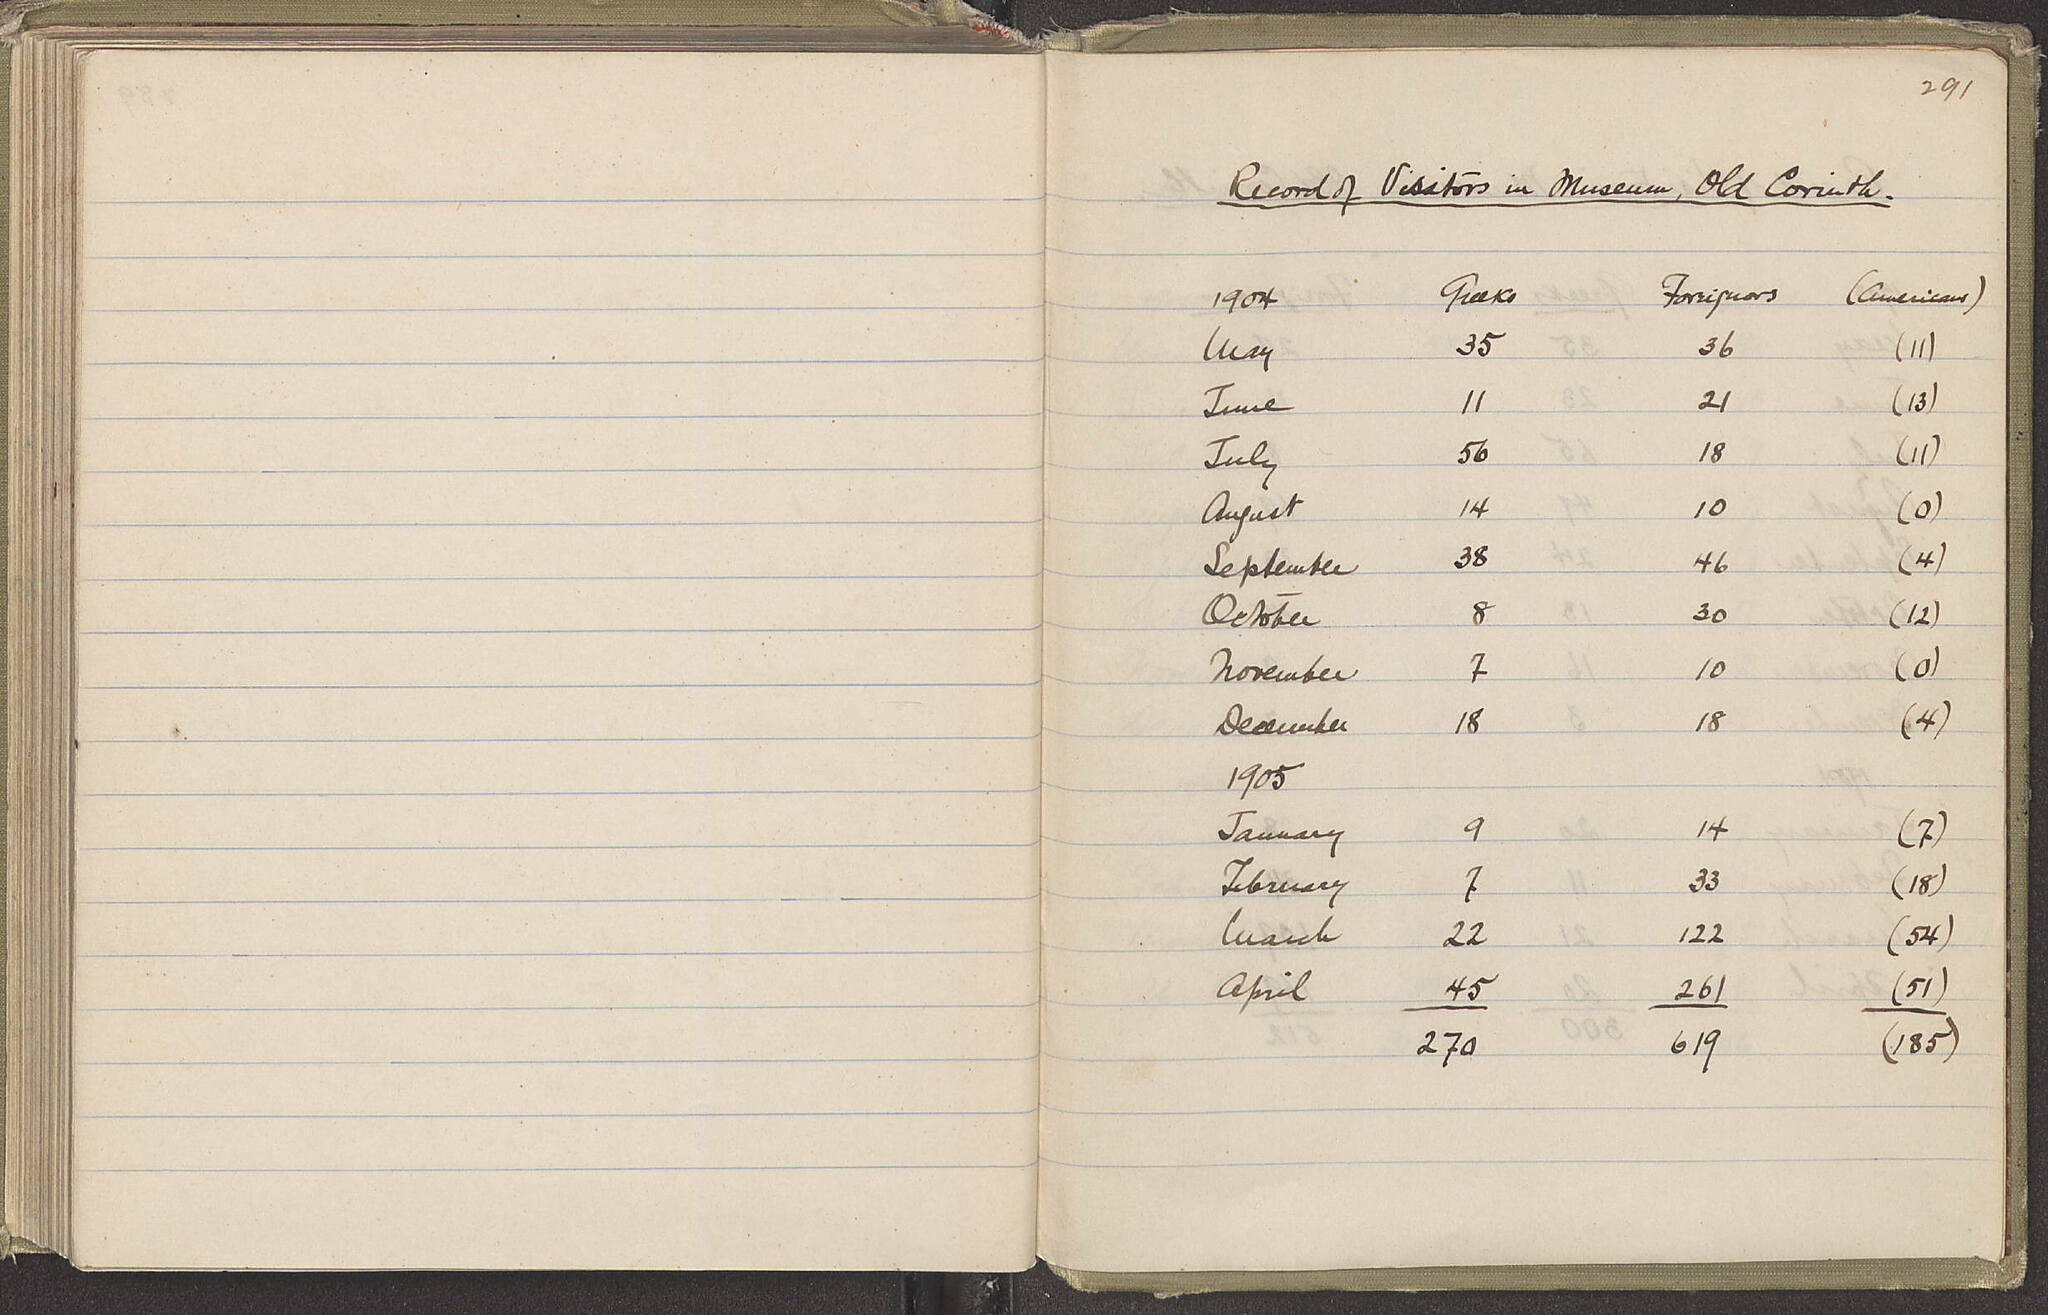 291
Record of Visitors in Museum, Old Corinth.
1904 Greeks Foreigners (Americans)
May 35 36 (11)
June 11 21 (13)
July 56 18 (11)
August 14 10 (0)
September 38 46 (4)
October 8 30 (12)
November 7 10 (0)
December 18 18 (4)
1905
January 9 14 (7)
February 7 33 (18)
March 22 122 (54)
April 45 261 (51)
270 619 (185)